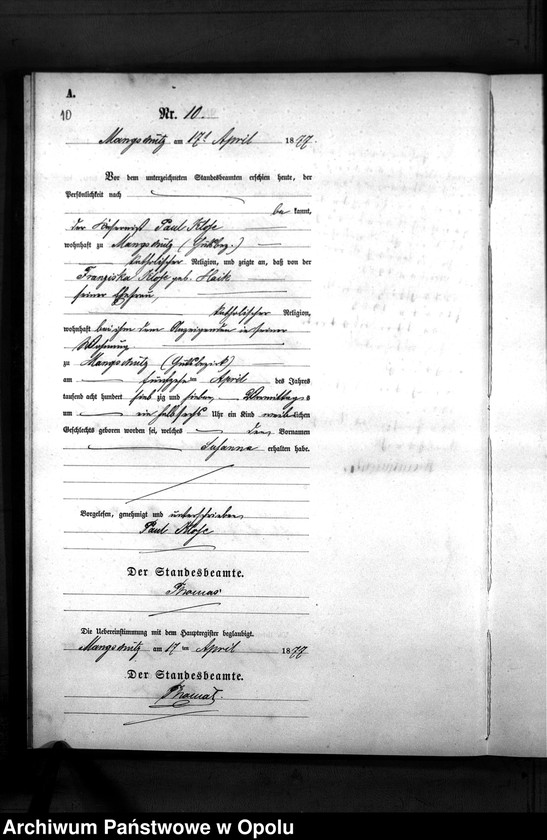 A.
10
Nr. 10.
am 17t April 1877.
Vor dem unterzeichneten Standesbeamten erschien heute, der
Persönlichkeit nach
be kannt,
der Paul Klose
wohnhaft zu (Gutsbez.)
katholischer Religion, und zeigte an, daß von der
Franziska Klose geb.
seiner Ehefrau,
katholischer Religion,
wohnhaft bei ihm dem Anzeigenden in seiner
Wohnung
zu (Gutsbezirk)
am fünfzehn ten April des Jahres
tausend acht hundert sieb zig und sieben, Vormittags
um ein halb sechs Uhr ein Kind weib lichen
Geschlechts geboren worden sei, welches den Vornamen
Susanna erhalten habe.
Vorgelesen, genehmigt und unterschrieben
Paul Klose
Der Standesbeamte.
Thomas
Die Uebereinstimmung mit dem Hauptregister beglaubigt.
am 17 ten April 1877
Der Standesbeamte.
Thomas.
Archiwum Państwowe w Opolu